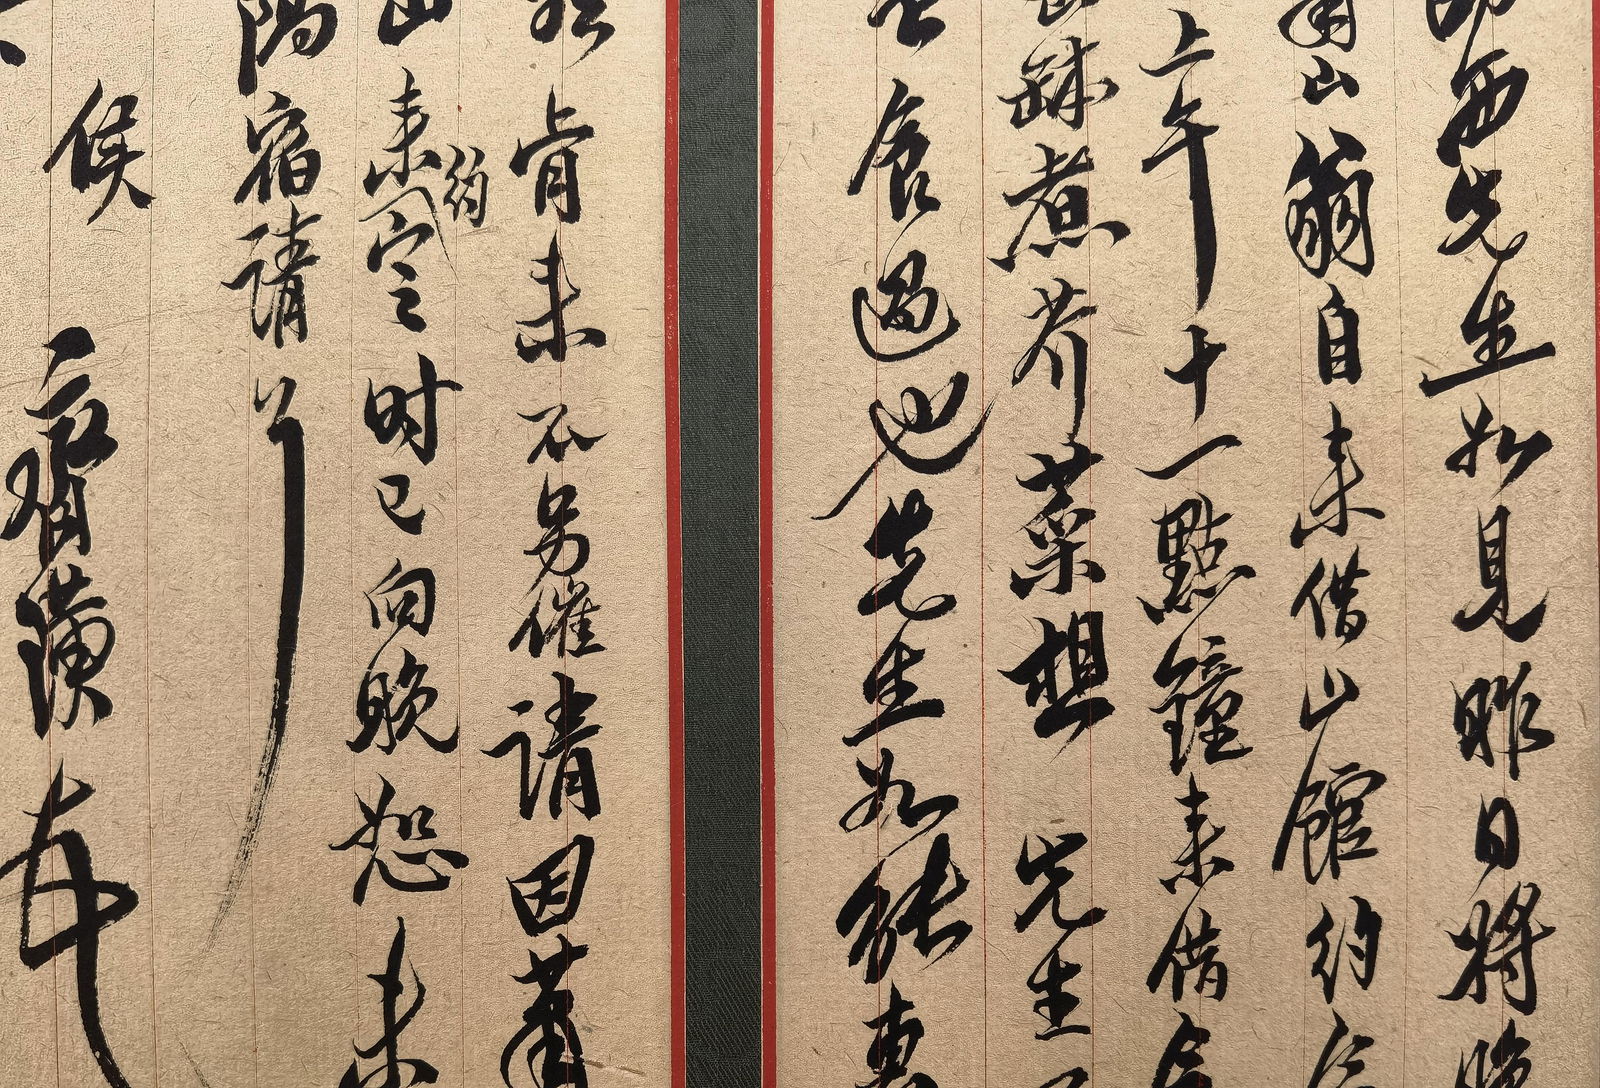 西先生如見昨日將晚
山翁自來借山館約
上午十一點鐘來借
缽煮芥菜想 先生
食過也先生如能惠
肯來不另催請因蕭
山來約定之時已向晚恕未
隅宿請
候 璜